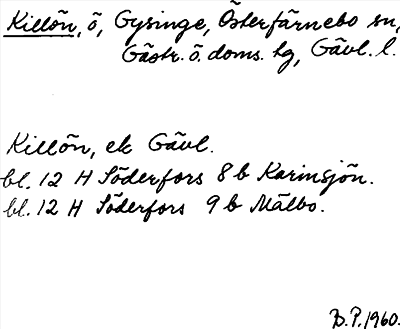 Killön, ö, Gysinge, Österfärnebo sn,
Gästr. ö. doms. tg, Gävl. l.
Killön, ek Gävl.
bl. 12 H Söderfors 8 b Karinsjön.
bl. 12 H Söderfors 9 b Målbo.
B.P. 1960.